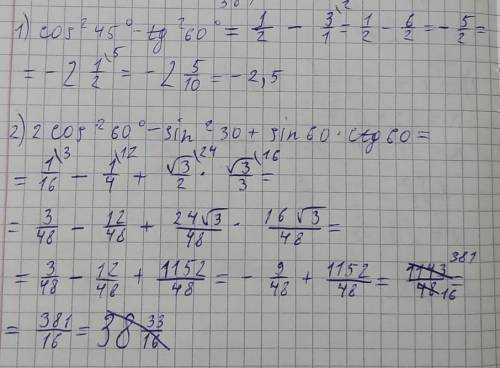 1) cos² 45° - tg² 60° = 1/2 - 3/1\² = 1/2 - 6/2 = - 5/2 =
= - 2 1/2\⁵ = - 2 5/10 = - 2,5
2) 2 cos² 60° - sin² 30 + sin 60 · ctg 60 =
= 1/16\³ - 1/4\¹² + √3/2\²⁴ · √3/3\¹⁶ =
= 3/48 - 12/48 + 24√3/48 · 16√3/48 =
= 3/48 - 12/48 + 1152/48 = - 9/48 + 1152/48 = 1143/48 381/16 =
= 381/16 = 38 33/16